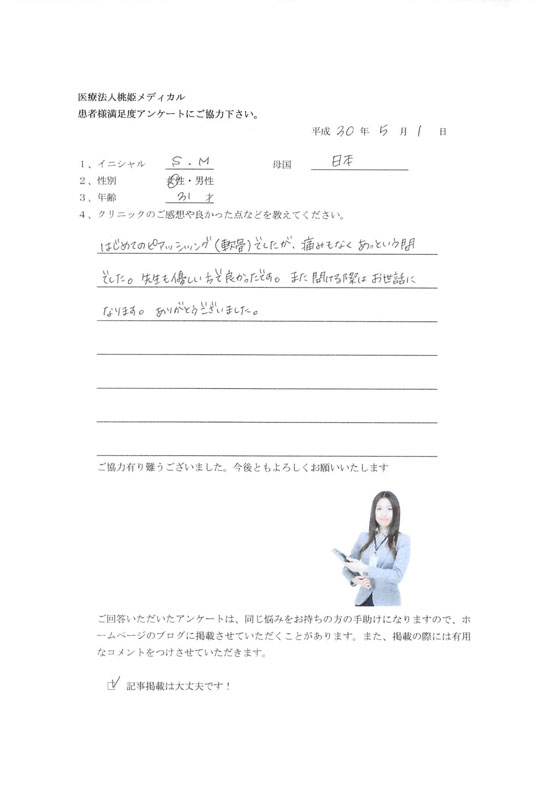 医療法人桃姫メディカル
患者様満足度アンケートにご協力下さい。
平成 30 年 5 月 1 日
1、イニシャル S.M 母国 日本
2、性別 女性・男性
3、年齢 31 才
4、クリニックのご感想や良かった点などを教えてください。
はじめてのピアッシング(軟骨)でしたが、痛みもなくあっという間
でした。先生も優しい方で良かったです。また開ける際はお世話に
なります。ありがとうございました。
ご協力有り難うございました。今後ともよろしくお願いいたします
ご回答いただいたアンケートは、同じ悩みをお持ちの方の手助けになりますので、ホ
ームページのブログに掲載させていただくことがあります。また、掲載の際には有用
なコメントをつけさせていただきます。
記事掲載は大丈夫です！